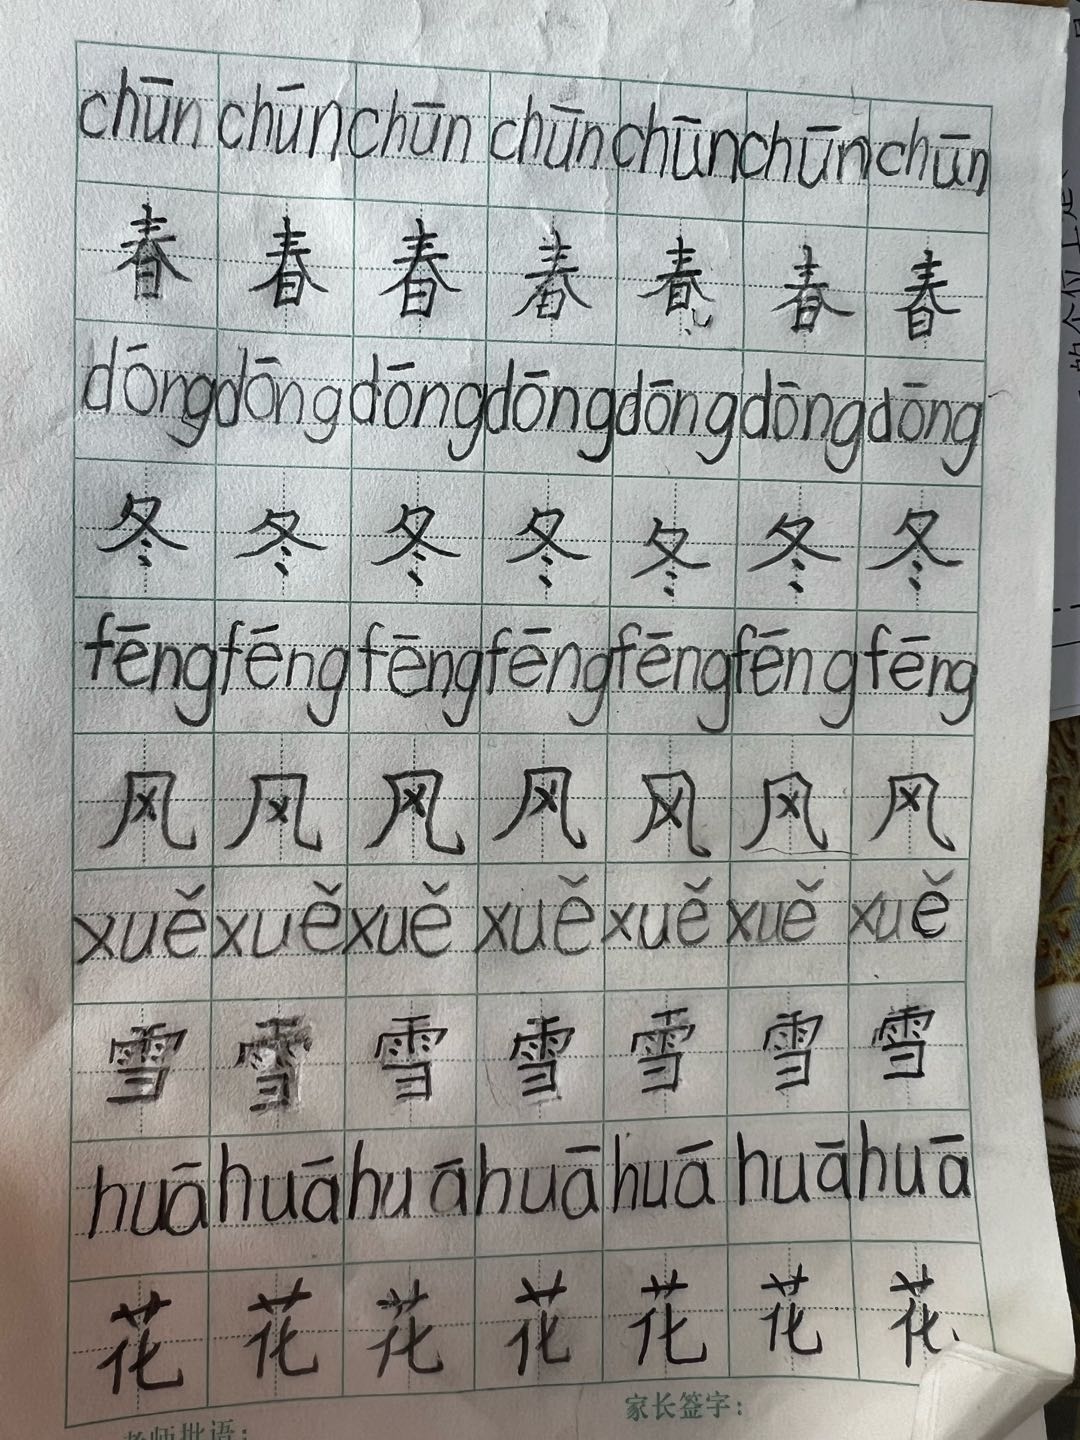 chūn chūn chūn chūn chūn chūn chūn
春 春 春 春 春 春 春
dōng dōng dōng dōng dōng dōng dōng
冬 冬 冬 冬 冬 冬 冬
fēng fēng fēng fēng fēng fēng fēng
风 风 风 风 风 风 风
xuě xuě xuě xuě xuě xuě xuě
雪 雪 雪 雪 雪 雪 雪
huā huā huā huā huā huā huā
花 花 花 花 花 花 花
老师批语: 家长签字: